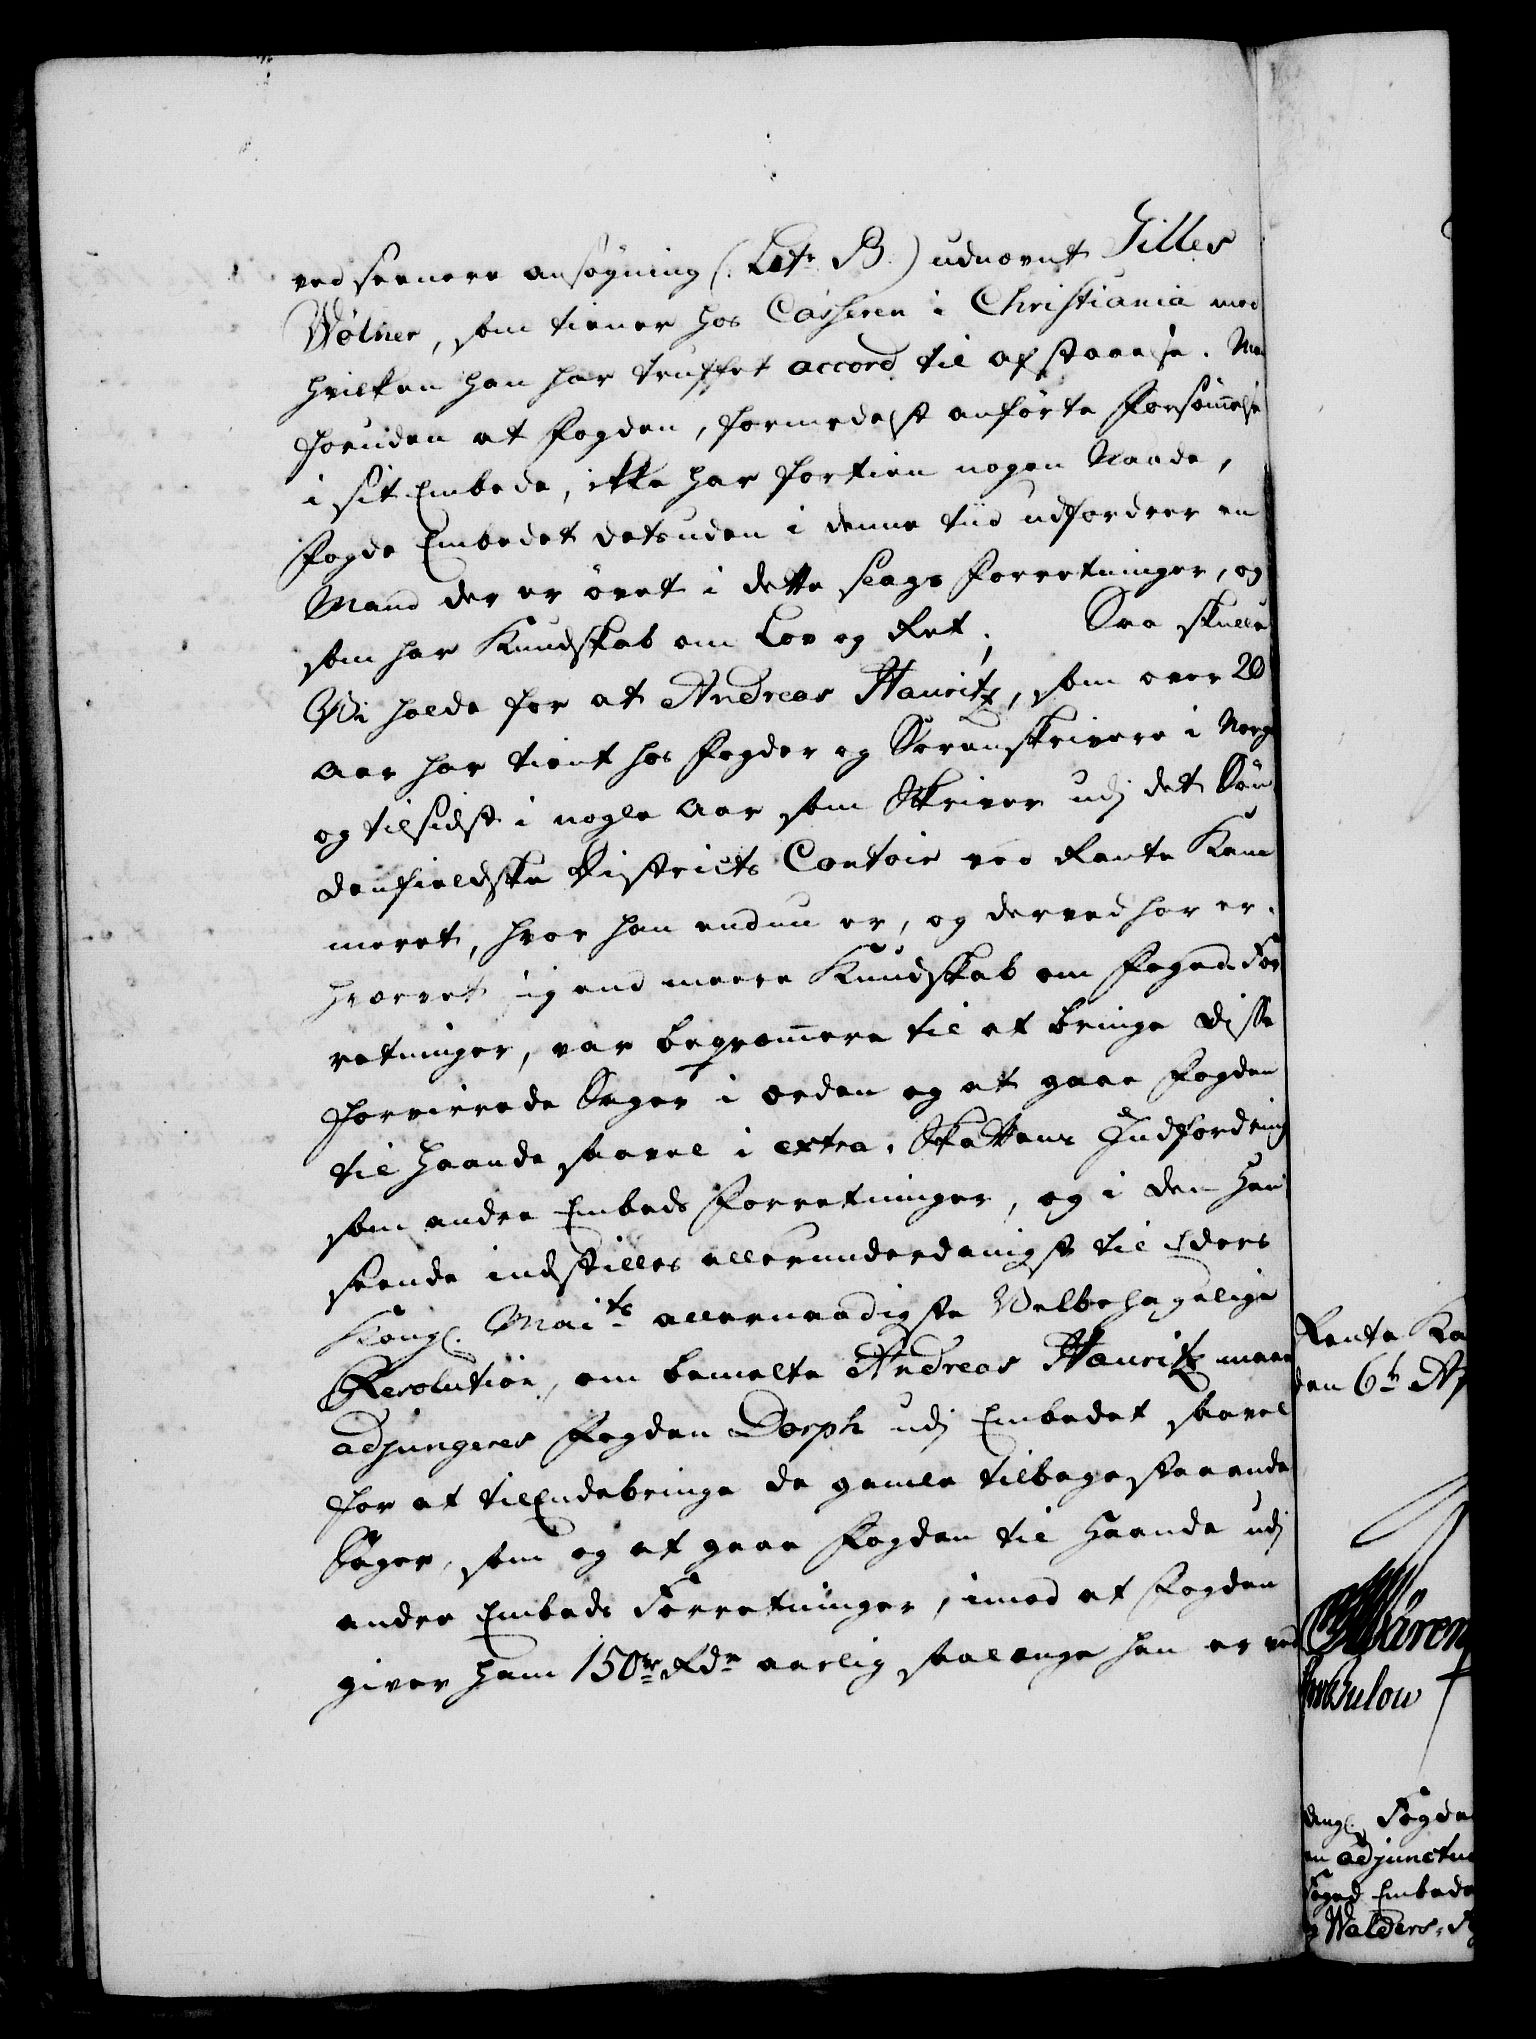 ved seenere ansøgning (: Litr. B.) udnævnt Gilles
Wølner, som tiener hos Casseren i Christiania med
hvilken han har truffet accord til afstaaelse. Men
foruden at Fogden, formedelst anførte Forsømmelse
i sit Embede, ikke har fortient nogen Naade,
Fogde Embedet desuden i denne tiid udfordrer en
Mand der er øvet i dette slags Forretninger, og
som har Kundskab om Lov og Ret; Saa skulle
Vi holde for at Andreas Hauritz, som over 20
Aar har tient hos Fogder og Sorenskrivere i Norge
og tilsidst i nogle Aar som Skriver udj det Søn
denfieldske Districts Contoir ved Rente Kam
meret, hvor han endnu er, og derved har er-
hvervet sig end meere Kundskab om Foged For
retninger, var beqvemmere til at bringe disse
forvirrede Sager i orden og at gaae Fogden
til Haande saavel i extra-Skattens Indfordring
som andre Embeds Forretninger, og i den Hen
seende indstilles allerunderdanigst til Eders
Kongl. Maits allernaadigste Velbehagelige
Resolution, om bemelte Andreas Hauritz maae
adjungeres Fogden Dorph udj Embedet saavel
for at tilEndebringe de gamle tilbagestaaende
Sager, som og at gaae Fogden til Haande udj
andre Embeds Forretninger, imod at Fogden
giver ham 150 Rdr aarlig saalænge han er ved
Rente Ka
den 6te Ap
Bulow
Fogde
en adjunctus
Foged Embede
Walders